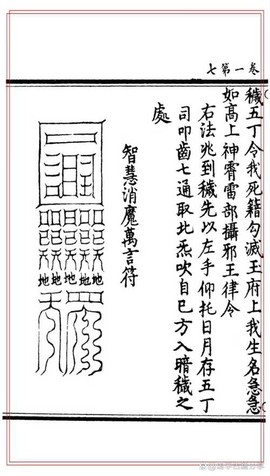 卷一第七
穢五丁令我死籍勾滅玉府上我生名急急
如高上神霄雷部攝邪王律令
右法兆到穢先以左手仰托日月存五丁
司叩齒七通取北炁吹自己方入暗穢之
處
智慧消魔萬言符
地地地